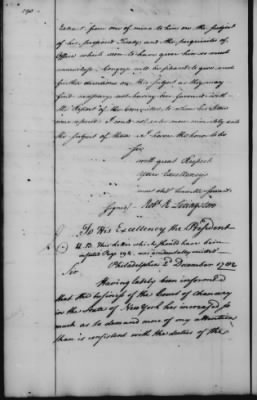 190
Extract from one of mine to him on the Subject
of his proposed Treaty, and the perquisites of
Office which seem to have given him so much
uneasiness. Congress will be pleased to give such
further directions on this Subject as they may
find necessary, not having been favored with
the Report of the Committee, to whom his letters
were referred I could not enter more minutely into
the Subject of them. I have the honor to be
Sir
with great Respect
your Excellency's
most obt humble servant
Signed Robt R Livingston
To His Excellency the President
N.B. This letter which should have been
inserted Page 192 was accidentally omitted
Philadelphia 2d December 1782
Sir
Having lately been informed
that the business of the Court of Chancery
in the State of New York has increased so
much as to demand more of my attention
than is consistent with the duties of the